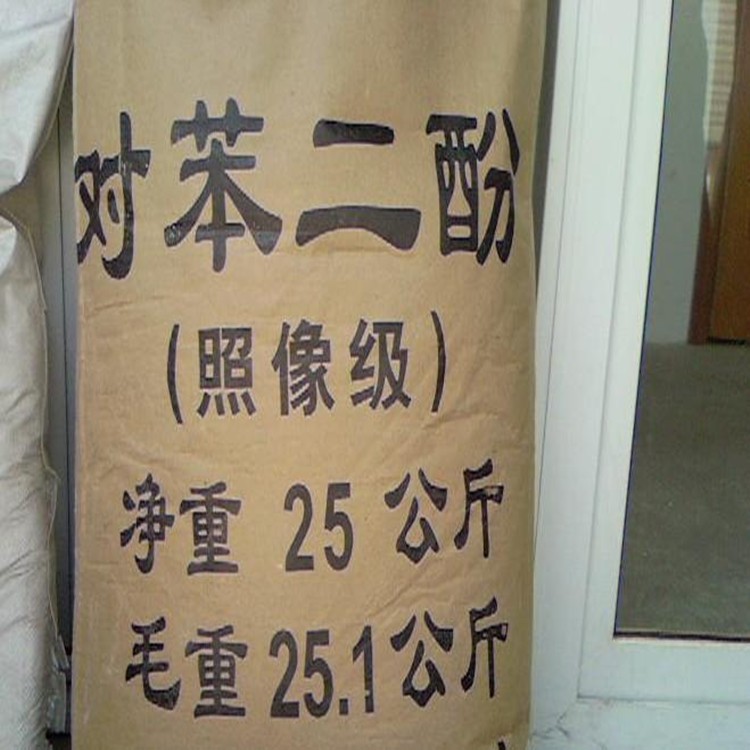 对苯二酚
(照像级)
净重 25 公斤
毛重 25.1 公斤